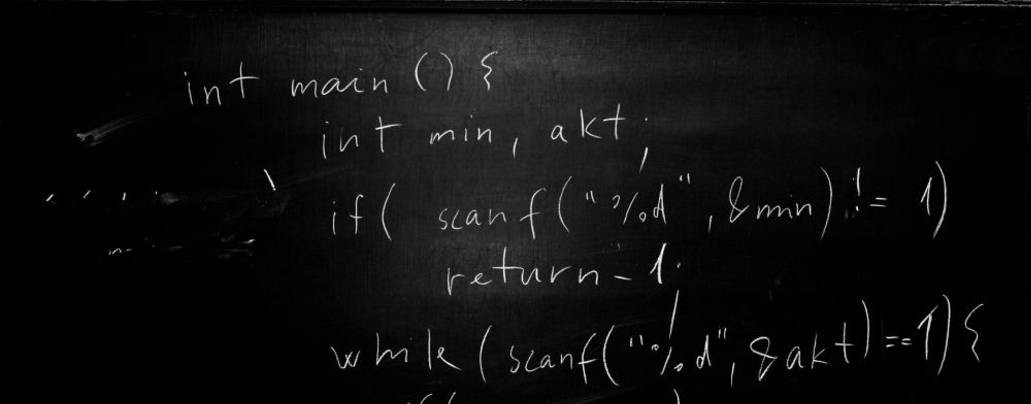 int main () {
int min, akt;
if( scanf("%d", &min) != 1)
return -1;
while (scanf("%d", &akt) == 1) {